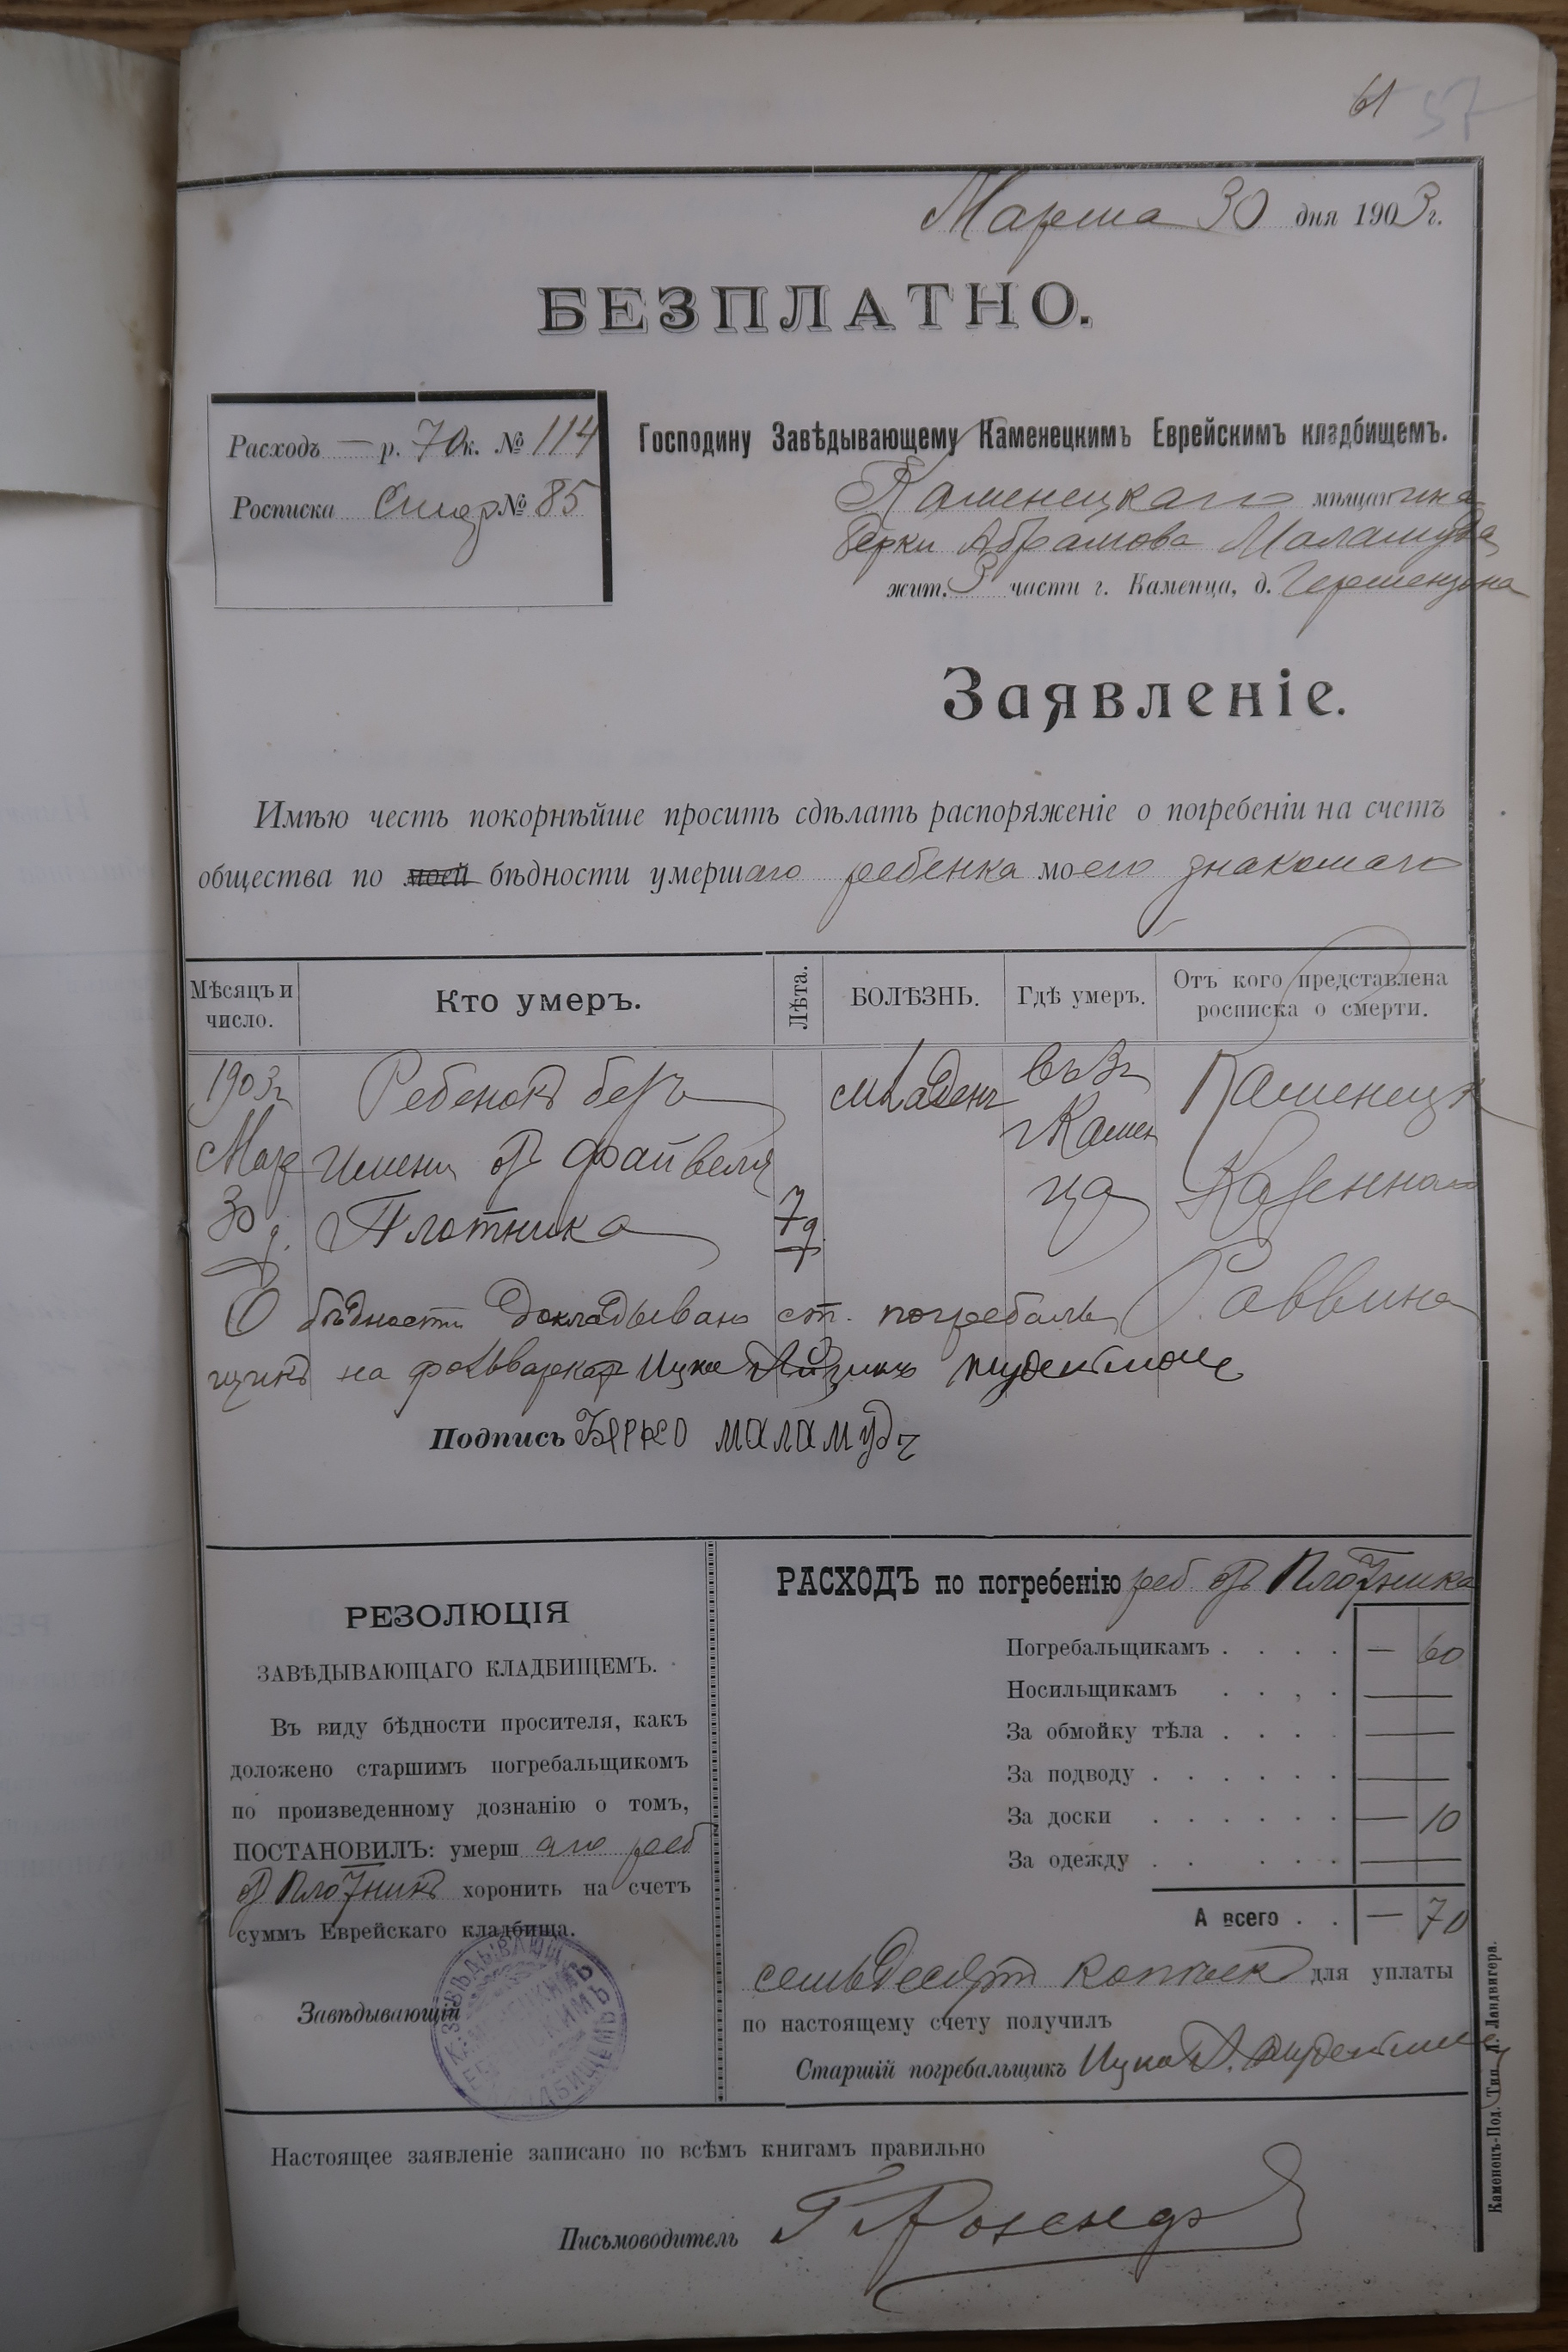 61 57
Марта 30 дня 1903 г.
БЕЗПЛАТНО.
Расходъ — р. 70 к. № 114
Росписка № 85
Господину Завѣдывающему Каменецкимъ Еврейскимъ кладбищемъ.
Каменецкаго мѣщанина
Берки Абрамова Маламуда
жит. 3 части г. Каменца, д. Гершензона
Заявленіе.
Имѣю честь покорнѣйше просить сдѣлать распоряженіе о погребеніи на счетъ
общества по моей бѣдности умершаго ребенка моего знакомаго
Мѣсяцъ и число.
Кто умеръ.
Лѣта.
БОЛѢЗНЬ.
Гдѣ умеръ.
Отъ кого представлена росписка о смерти.
1903 г
Мар
30 д.
Ребенокъ безъ
имени отъ Файвеля
Плотника
7 д
младенч
въ 3 ч
г Камен
ца
Каменецк
Казеннаго
Раввина
О бѣдности докладываю ст. погребаль
щикъ на фольваркахъ Ицко
Подпись Берко маламудъ
РЕЗОЛЮЦІЯ
ЗАВѢДЫВАЮЩАГО КЛАДБИЩЕМЪ.
Въ виду бѣдности просителя, какъ
доложено старшимъ погребальщикомъ
по произведенному дознанію о томъ,
ПОСТАНОВИЛЪ: умершаго реб
отъ Плотникъ хоронить на счетъ
суммъ Еврейскаго кладбища.
Завѣдывающій
РАСХОДЪ по погребенію реб отъ Плотника
Погребальщикамъ . . . . — 60
Носильщикамъ . . . . —
За обмойку тѣла . . . . —
За подводу . . . . . . —
За доски . . . . . . — 10
За одежду . . . . . . —
А всего . . — 70
семьдесятъ копѣекъ для уплаты
по настоящему счету получилъ
Старшій погребальщикъ Ицко
Настоящее заявленіе записано по всѣмъ книгамъ правильно
Письмоводитель
Каменецъ-Под. Тип. Л. Ландвигера.